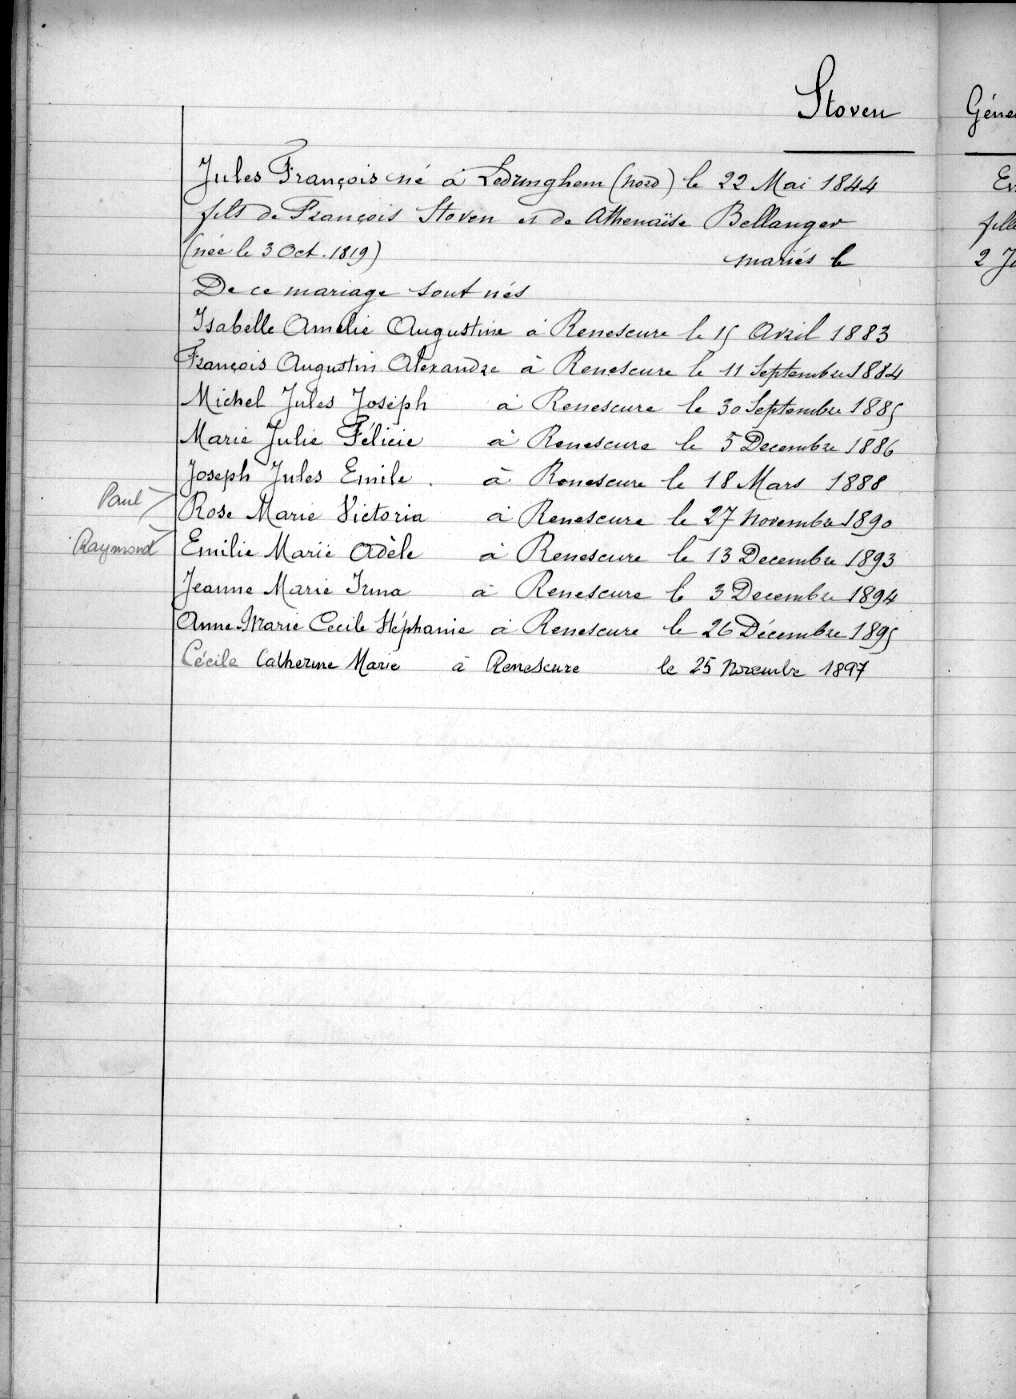 Stoven
Jules François né à Ledringhem (Nord) le 22 Mai 1844
fils de François Stoven et de Athenaïse Bellanger
(née le 3 Oct. 1819) mariés le
De ce mariage sont nés
Isabelle Amelie Augustine à Renescure le 15 Avril 1883
François Augustin Alexandre à Renescure le 11 Septembre 1884
Michel Jules Joseph à Renescure le 30 Septembre 1885
Marie Julie Félicie à Renescure le 5 Decembre 1886
Joseph Jules Emile à Renescure le 18 Mars 1888
Paul
Rose Marie Victoria à Renescure le 27 Novembre 1890
Raymond
Emilie Marie Adèle à Renescure le 13 Decembre 1893
Jeanne Marie Irma à Renescure le 3 Decembre 1894
Anne Marie Cecile Stéphanie à Renescure le 26 Décembre 1895
Cécile Catherine Marie à Renescure le 25 Novembre 1897
Géné
fille
2